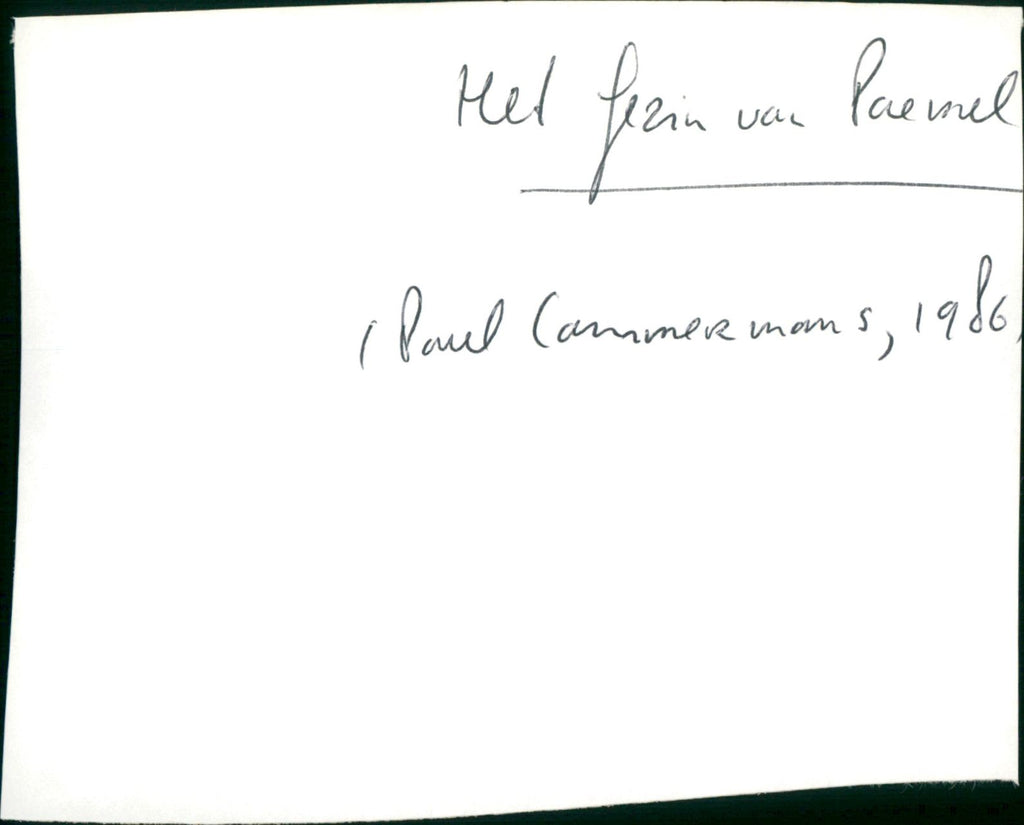 Het gezin van Paemel
(Paul Cammermans, 1986)